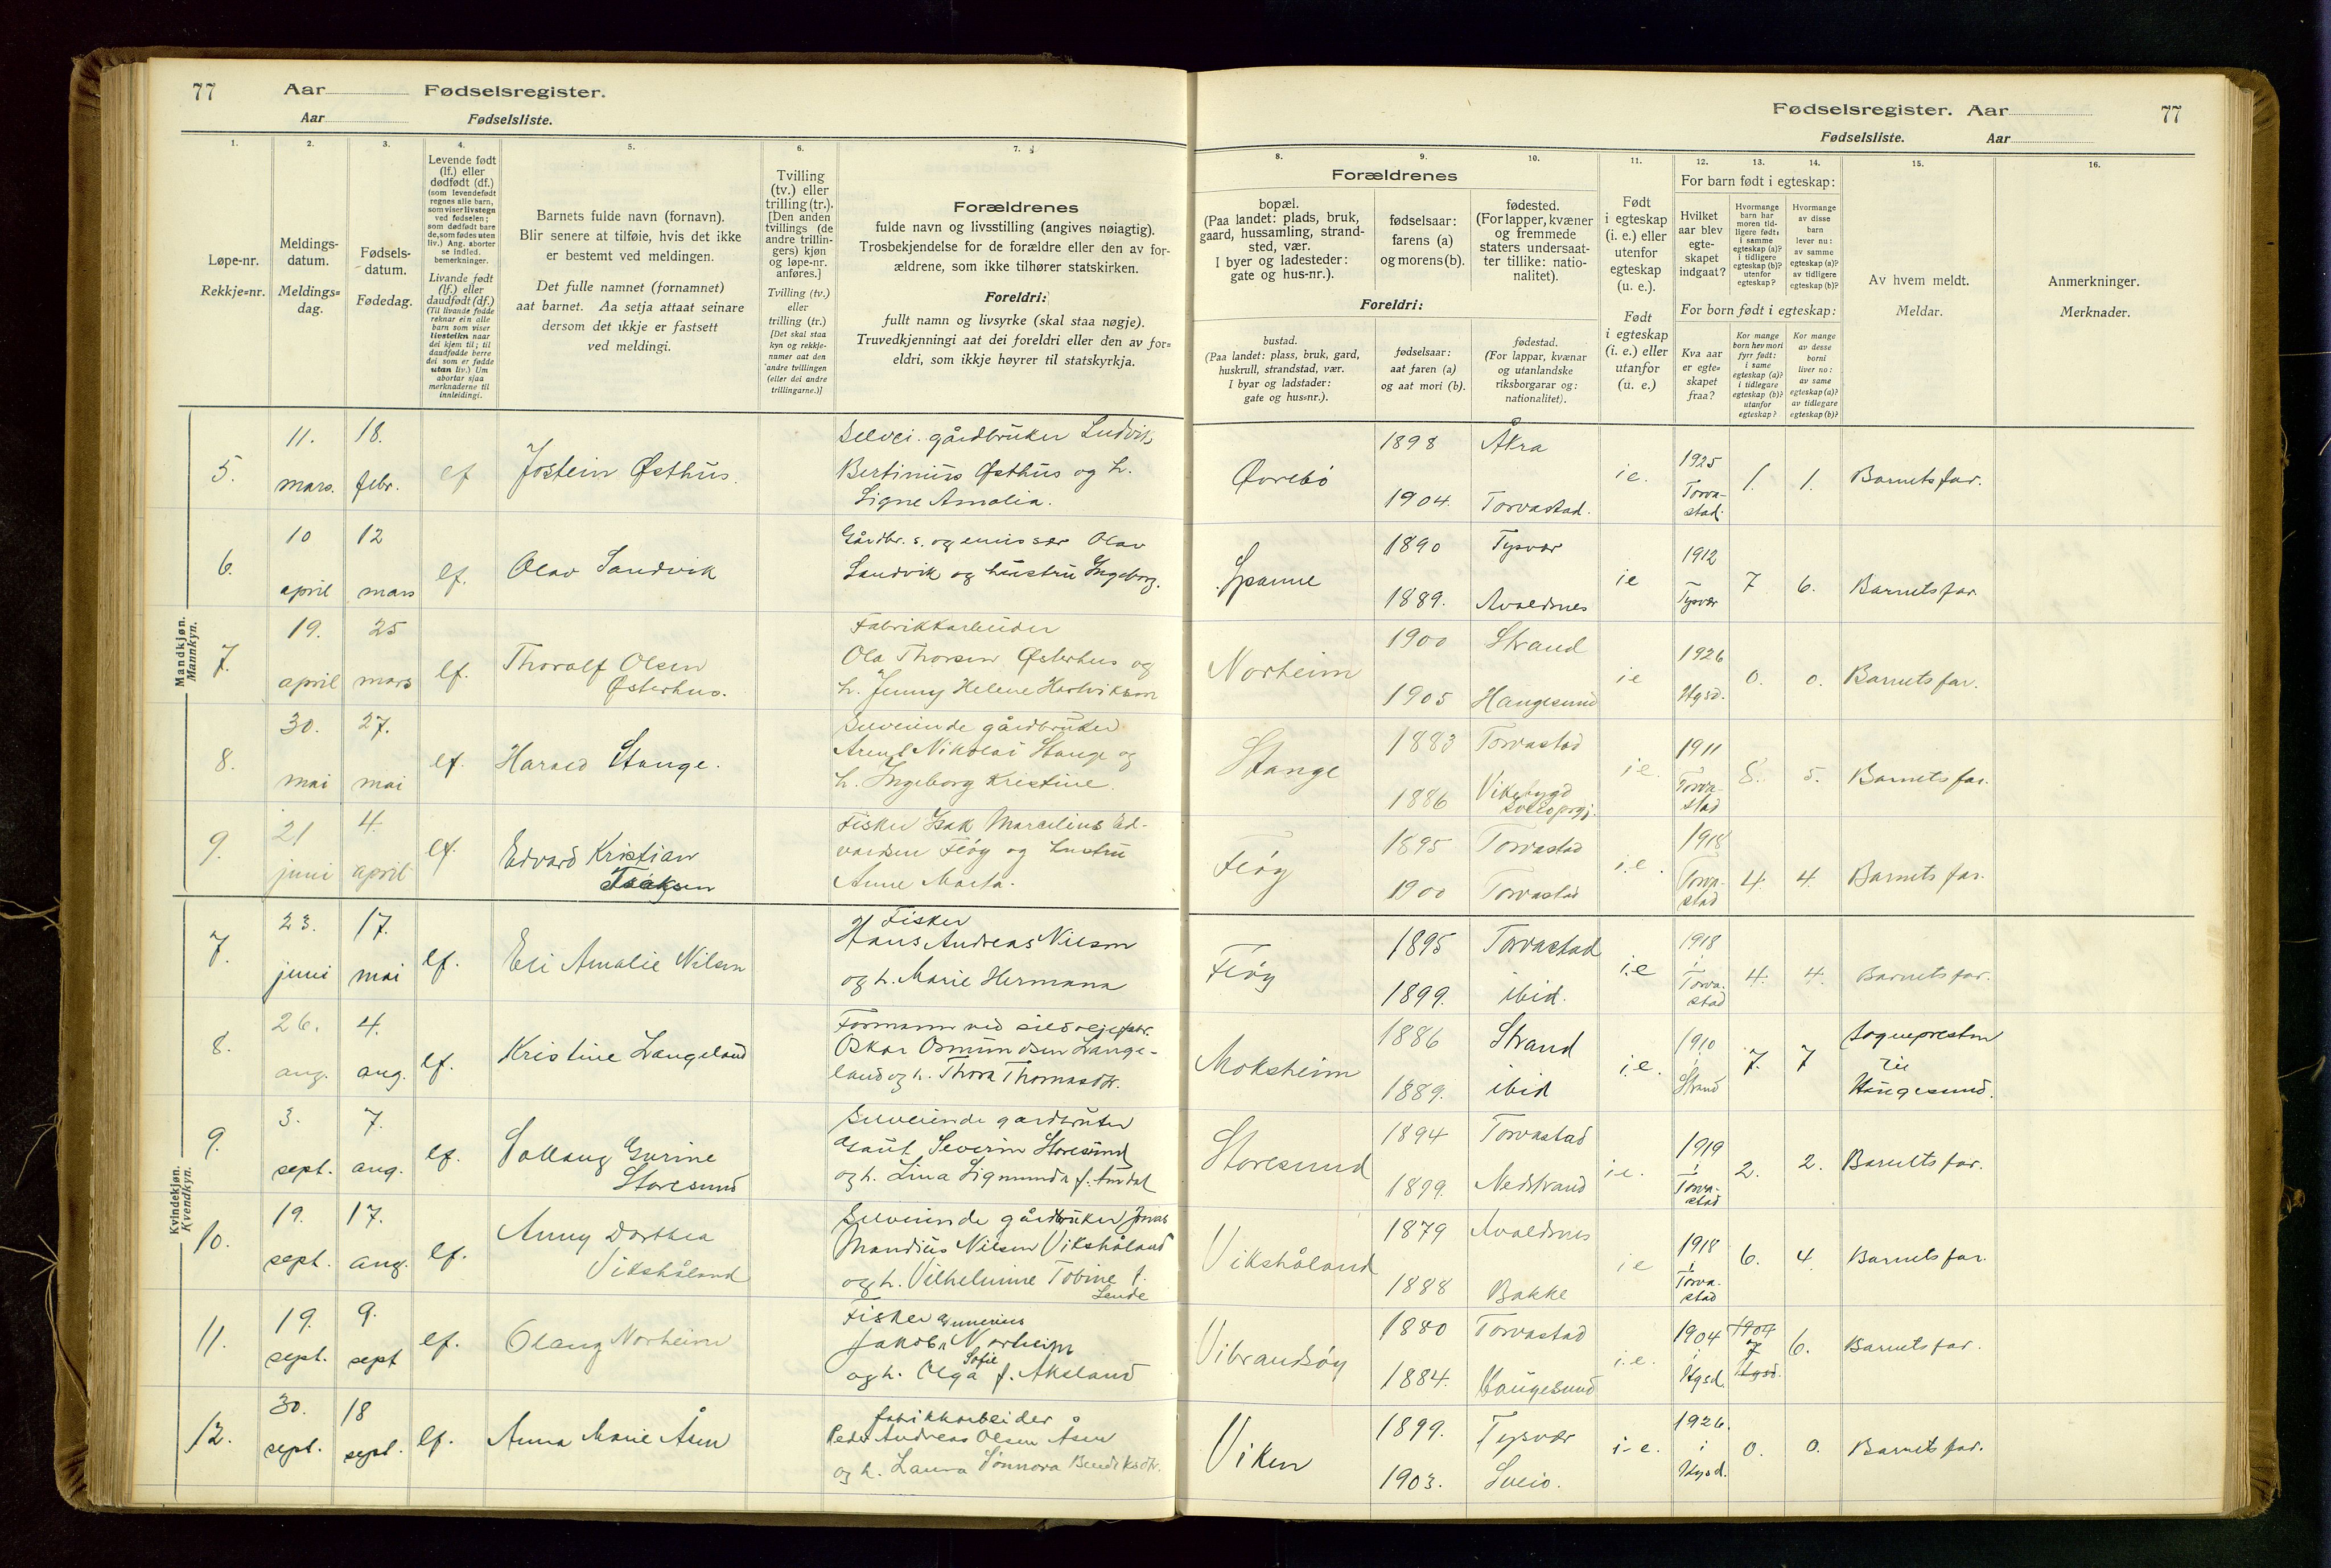 77 Aar Fødselsregister.
Aar Fødselsliste.
Fødselsregister. Aar 77
Fødselsliste. Aar
1. 2. 3. 4. 5. 6. 7. 8. 9. 10. 11. 12. 13. 14. 15. 16.
Løpe-nr.
Rekkje=nr.
Meldings-
datum.
Meldings=
dag.
Fødsels-
datum.
Fødedag.
Levende født
(lf.) eller
dødfødt (df.)
(som levendefødt
regnes alle barn,
som viser livstegn
ved fødselen;
som dødfødt bare
de, som fødes uten
liv.) Ang. aborter
se indled.
bemerkninger.
Livande født
(lf.) eller
daudfødt (df.)
(Til livande fødde
reknar ein alle
barn som viser
livsteikn naar
dei kjem til; til
daudfødde berre
dei som er fødde
utan liv.) Um
abortar sjaa
merknaderne til
innleidingi.
Barnets fulde navn (fornavn).
Blir senere at tilføie, hvis det ikke
er bestemt ved meldingen.
Det fulle namnet (fornamnet)
aat barnet. Aa setja attaat seinare
dersom det ikkje er fastsett
ved meldingi.
Tvilling
(tv.) eller
trilling (tr.).
[Den anden
tvillings (de
andre trillin-
gers) kjøn
og løpe-nr.
anføres.]
Tvilling (tv.)
eller
trilling (tr.)
[Det skal staa
kyn og rekkje-
numer aat den
andre tvillingen
(eller dei andre
trillingarne.)]
Forældrenes
fulde navn og livsstilling (angives nøiagtig).
Trosbekjendelse for de forældre eller den av for-
ældrene, som ikke tilhører statskirken.
Foreldri:
fullt namn og livsyrke (skal staa nøgje).
Truvedkjenningi aat dei foreldri eller den av for=
eldri, som ikkje høyrer til statskyrkja.
Forældrenes
bopæl.
(Paa landet: plads, bruk,
gaard, hussamling, strand-
sted, vær.
I byer og ladesteder:
gate og hus-nr.).
fødselsaar:
farens (a)
og morens (b).
fødested.
(For lapper, kvæner
og fremmede
staters undersaat-
ter tillike: natio-
nalitet).
Foreldri:
bustad.
(Paa landet: plass, bruk, gard,
huskrull, strandstad, vær.
I byar og ladstader:
gate og hus=nr.).
fødselsaar:
aat faren (a)
og aat mori (b).
fødestad.
(For lappar, kvænar
og utanlandske
riksborgarar og:
nationalitet).
Født
i egteskap
(i. e.) eller
utenfor
egteskap
(u. e.).
Født
i egteskap
(i. e.) eller
utanfor
(u. e.)
For barn født i egteskap:
Hvilket
aar blev
egte-
skapet
indgaat?
Hvormange
barn har
moren tid-
ligere født:
i samme
egteskap (a)?
i tidligere
egteskap (b)?
utenfor
egteskap?
Hvormange
av disse
barn
lever nu:
av samme
egteskap (a)?
av tidligere
egteskap (b)?
For born født i egteskap:
Kva aar
er egte=
skapet
fraa?
Kor mange
born hev mori
fyrr født:
i same
egteskap (a)?
i tidlegare
egteskap (b)?
utanfor
egteskap?
Kor mange
av desse
borni
liver no:
av same
egteskap (a)?
av tidlegare
egteskap (b)?
Av hvem meldt.
Meldar.
Anmerkninger.
Merknader.
Mandkjøn.
Mannkyn.
5. 11. mars. 18. febr. lf Jostein Østhus.
Selvei. gårdbruker Ludvik
Bertinius Østhus og h.
Signe Amalia.
Øvrebö 1898 Åkra
1904. Torvastad.
i e. 1925 Torva-
stad. 1. 1. Barnets far.
6. 10 april 12 mars lf. Olav Sandvik
Gårdbr. s. og emissær Olav
Sandvik og hustru Ingeborg.
Spanne 1890 Tysvær
1889. Avaldsnes
i e 1912 Tysvær 7 6. Barnets far
7. 19. april 25 mars lf. Thoralf Olsen
Østerhus.
Fabrikkarbeider
Ola Thorsen Østerhus og
h. Jenny Helene Hartviksen
Norheim 1900 Strand
1905 Haugesund
i e 1926 Hgsd. 0. 0. Barnets far.
8. 30. mai 27. mai lf. Harald Stange.
Selveiende gårdbruker
Arent Nikolai Stange og
h. Ingeborg Kristine.
Stange 1883 Torvastad
1886 Vikebygd
i e. 1911 Torva-
stad 8. 5. Barnets far.
9. 21 juni 4. april lf. Edvard Kristian
Isaksen
Fisker Isak Marcelius Ed-
vardsen Fløy og hustru
Anne Marta.
Fløy 1895 Torvastad
1900 Torvastad
i.e. 1918 Torva-
stad 4. 4. Barnets far.
Kvindekjøn.
Kvendkyn.
7. 23. juni 17. mai lf. Eli Amalie Nilsen
Fisker
Hans Andreas Nilsen
og h. Marie Hermana
Fløy 1895 Torvastad
1899. ibid.
i.e 1918 i Torva-
stad 4. 4. Barnets far.
8. 26. aug. 4. aug. lf. Kristine Langeland
Formann ved sildoljefabr.
Oskar Osmundsen Lange-
land og h. Thora Thomasdtr.
Moksheim 1886 Strand
1889. ibid
i.e. 1910 i Strand 7. 7 Sognepresten
til
Haugesund.
9. 3. sept. 7. aug. lf. Sollaug Gurine
Storesund
Selveiende gardbruker
Gaut Severin Storesund
og h. Lina Sigmunda f. Årdal
Storesund 1894 Torvastad
1899. Nedstrand
i e. 1919 i Torva-
stad 2. 2. Barnets far.
10. 19. sept. 17. aug. lf. Anny Dorthea
Vikshåland
Selveiende gårdbruker Jonas
Mandius Nilsen Vikshåland
og h. Vilhelmine Tobine f.
Lende
Vikshåland 1879 Avaldsnes
1888 Bakke
i e 1918 i Torva-
stad 6. 4. Barnets far.
11. 19. sept. 9. sept lf. Olaug Norheim
Fisker Gunerius
Jakob Norheim
og h. Olga Sofie f. Aksland
Vibrandsøy 1880 Torvastad
1884. Haugesund
i.e. 1904 i Hgsd. 1904 7 Hgsd. 6. Barnets far.
12. 30. sept. 18 sept. lf. Anna Marie Åsen
fabrikkarbeider
Peder Andreas Olsen Åsen
og h. Laura Sonnova Bendiksdtr.
Viken 1899. Tysvær
1903. Sveio.
i-e. 1926. i Hgsd. 0. 0. Barnets far.